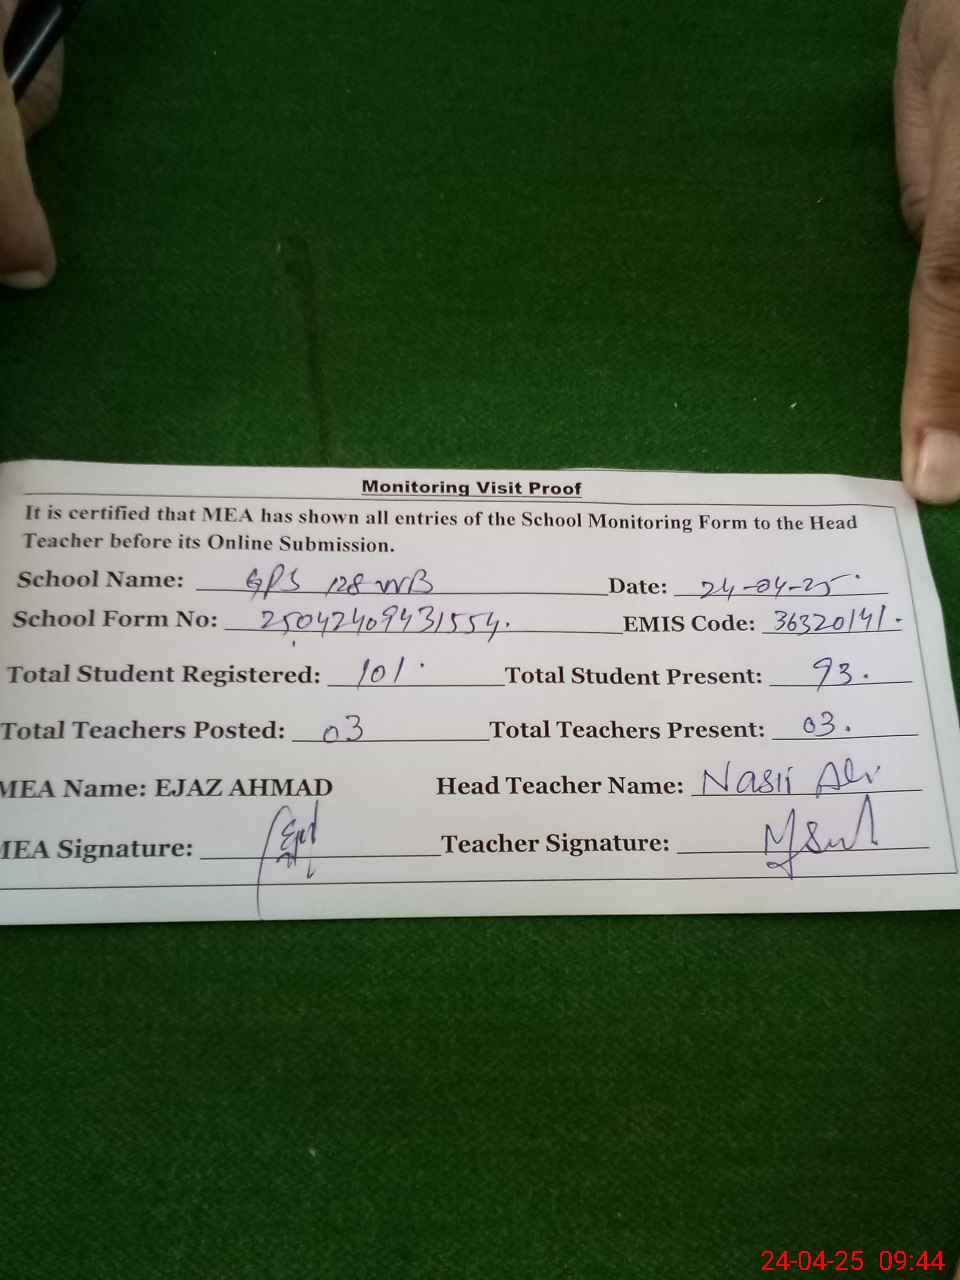 Monitoring Visit Proof
It is certified that MEA has shown all entries of the School Monitoring Form to the Head
Teacher before its Online Submission.
School Name: GPS 128 WB Date: 24-04-25
School Form No: 25042409431554. EMIS Code: 36320141.
Total Student Registered: 101. Total Student Present: 93.
Total Teachers Posted: 03 Total Teachers Present: 03.
MEA Name: EJAZ AHMAD Head Teacher Name: Nasir Ali
MEA Signature: Teacher Signature:
24-04-25 09:44